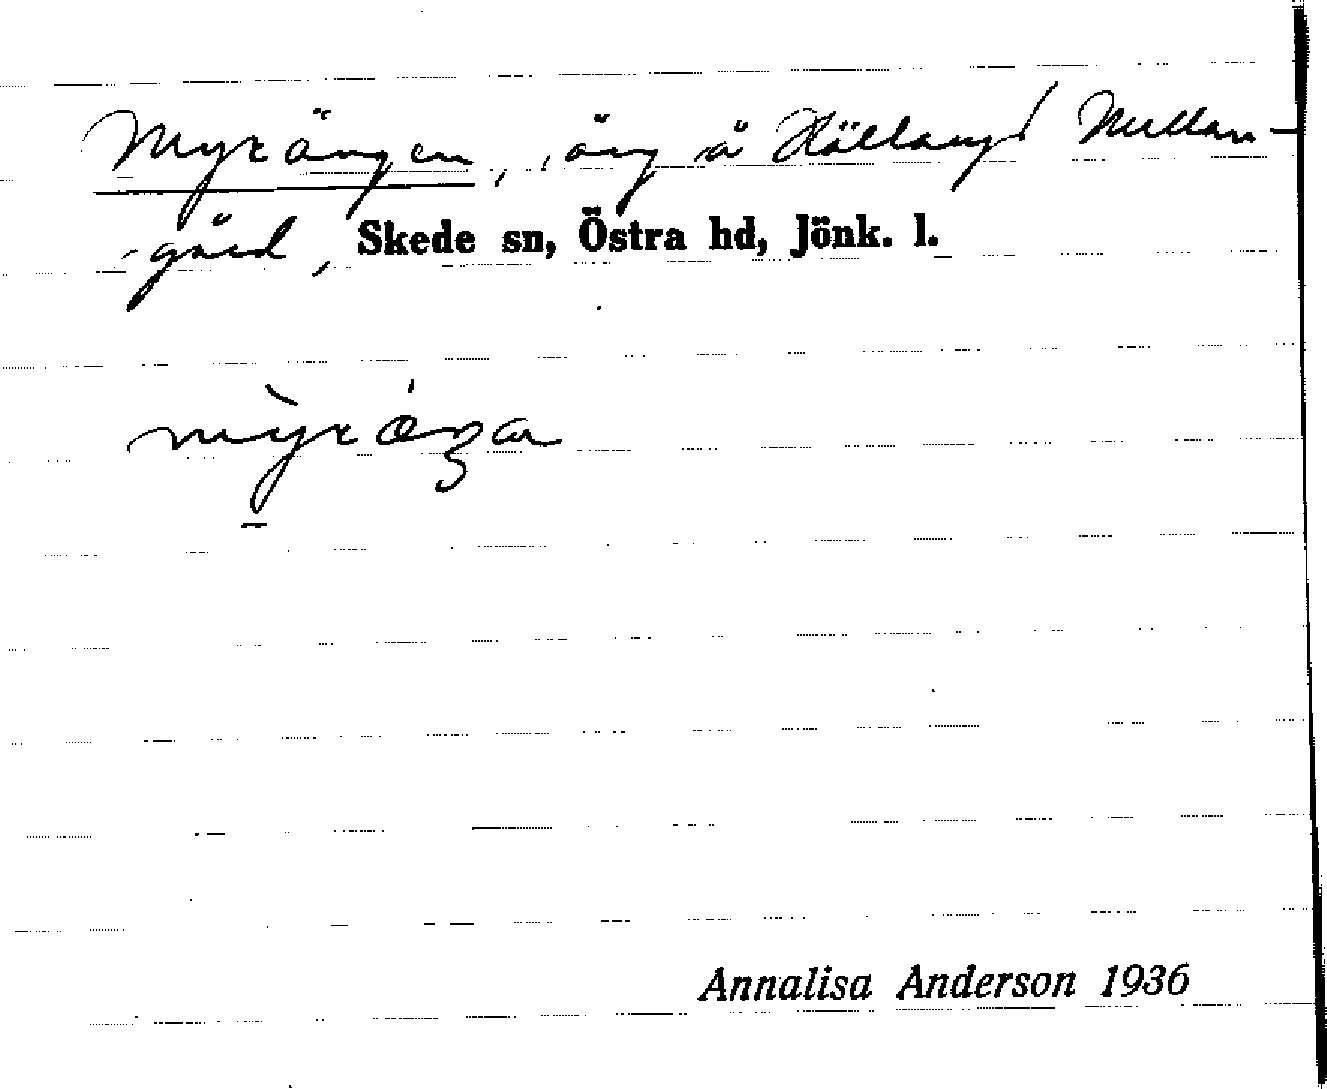 Myrängen, äng å Hällaryd Mellan-
gård, Skede sn, Östra hd, Jönk. l.
Annalisa Anderson 1936